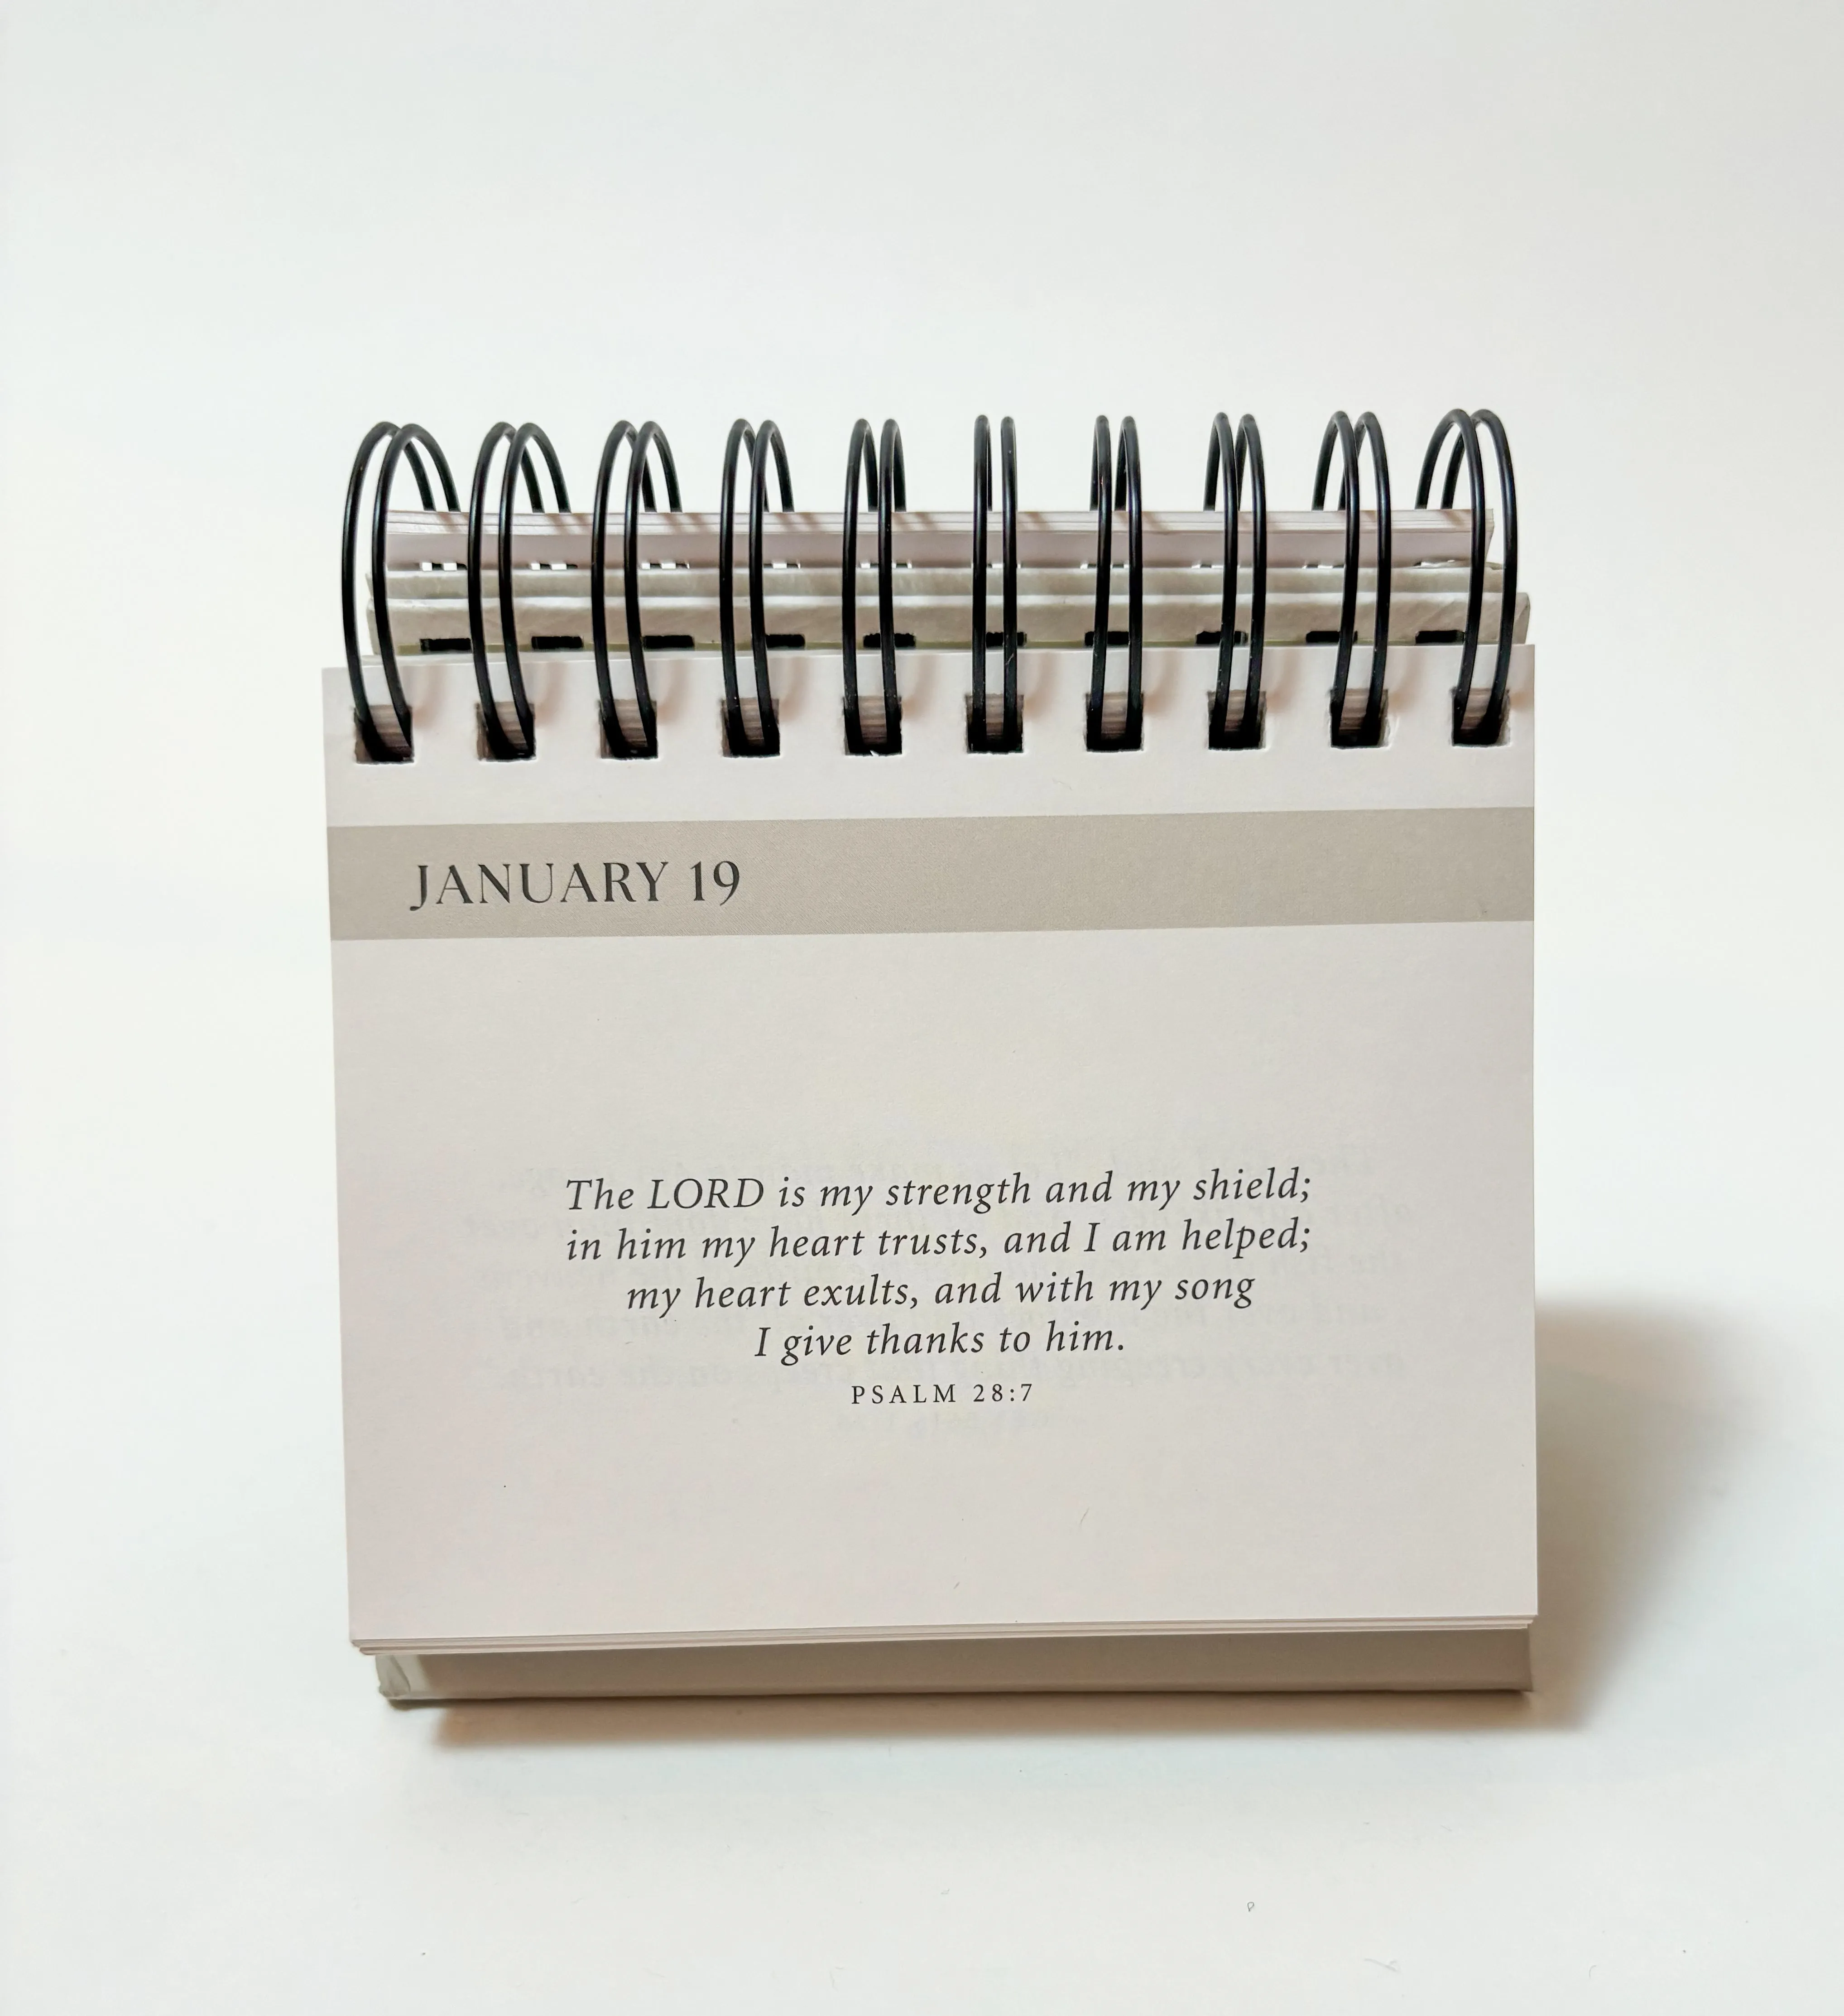 JANUARY 19
The LORD is my strength and my shield;
in him my heart trusts, and I am helped;
my heart exults, and with my song
I give thanks to him.
PSALM 28:7